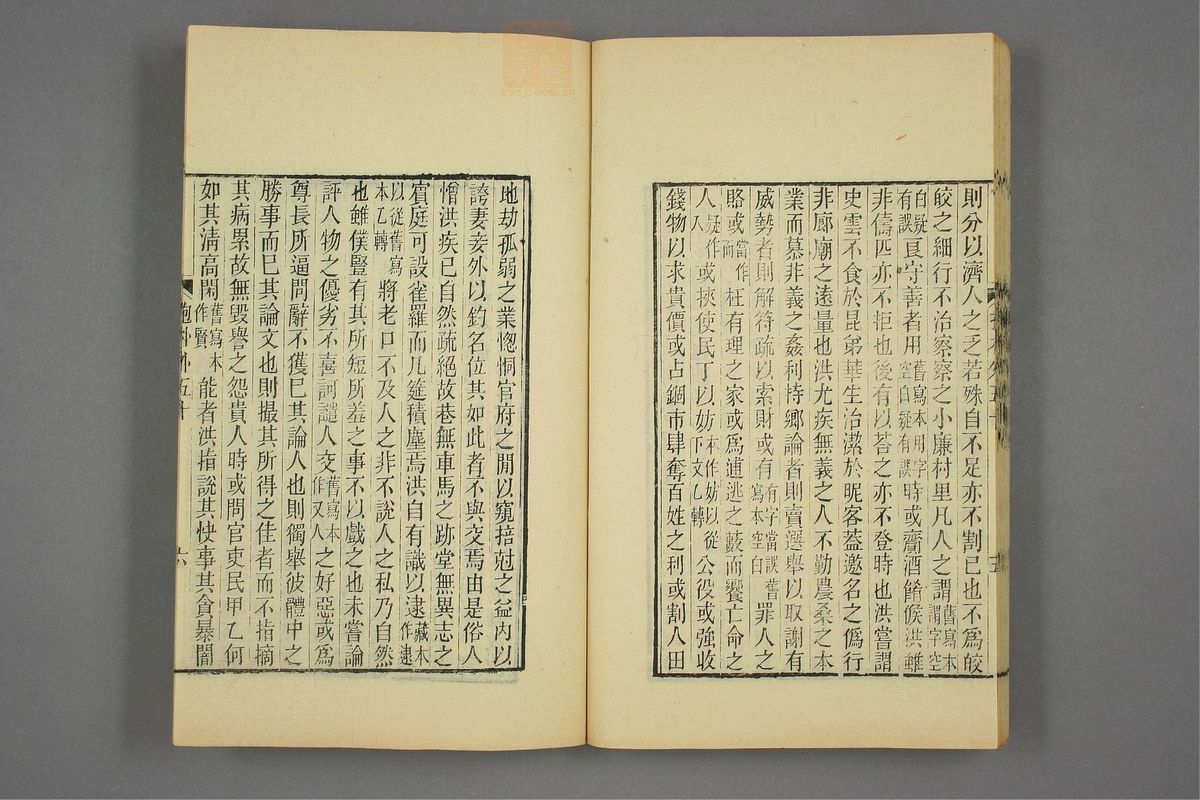 則分以濟人之乏若殊自不足亦不割己也不為皎
皎之細行不治察察之小廉村里凡人之謂舊寫本謂字空
白疑有誤良守善者用舊寫本用字空白疑有誤時或齎酒餚候洪雖
非儔匹亦不拒也後有以荅之亦不登時也洪嘗謂
史雲不食於昆弟華生治潔於昵客蓋邀名之僞行
非廊廟之遠量也洪尤疾無義之人不勤農桑之本
業而慕非義之姦利持鄉論者則賣選舉以取謝有
威勢者則解符疏以索財或有有字當誤舊寫本空白罪人之
賂或當作而枉有理之家或爲逋逃之藪而饗亡命之
人疑作入或挾使民丁以妨本作妨以從下文乙轉公役或強收
錢物以求貴價或占錮市肆奪百姓之利或割人田
地劫孤弱之業惚恫官府之閒以窺掊尅之益內以
誇妻妾外以釣名位其如此者不與交焉由是俗人
憎洪疾己自然疏絕故巷無車馬之跡堂無異志之
賓庭可設雀羅而几筵積塵焉洪自有識以逮藏本作逮
以從舊寫本乙轉將老口不及人之非不說人之私乃自然
也雖僕豎有其所短所羞之事不以戲之也未嘗論
評人物之優劣不喜訶譴人交舊寫本作又人之好惡或爲
尊長所逼問辭不獲已其論人也則獨舉彼體中之
勝事而已其論文也則撮其所得之佳者而不指摘
其病累故無毀譽之怨貴人時或問官吏民甲乙何
如其淸高閑舊寫本作賢能者洪指說其快事其貪暴闇
抱朴外五十
六